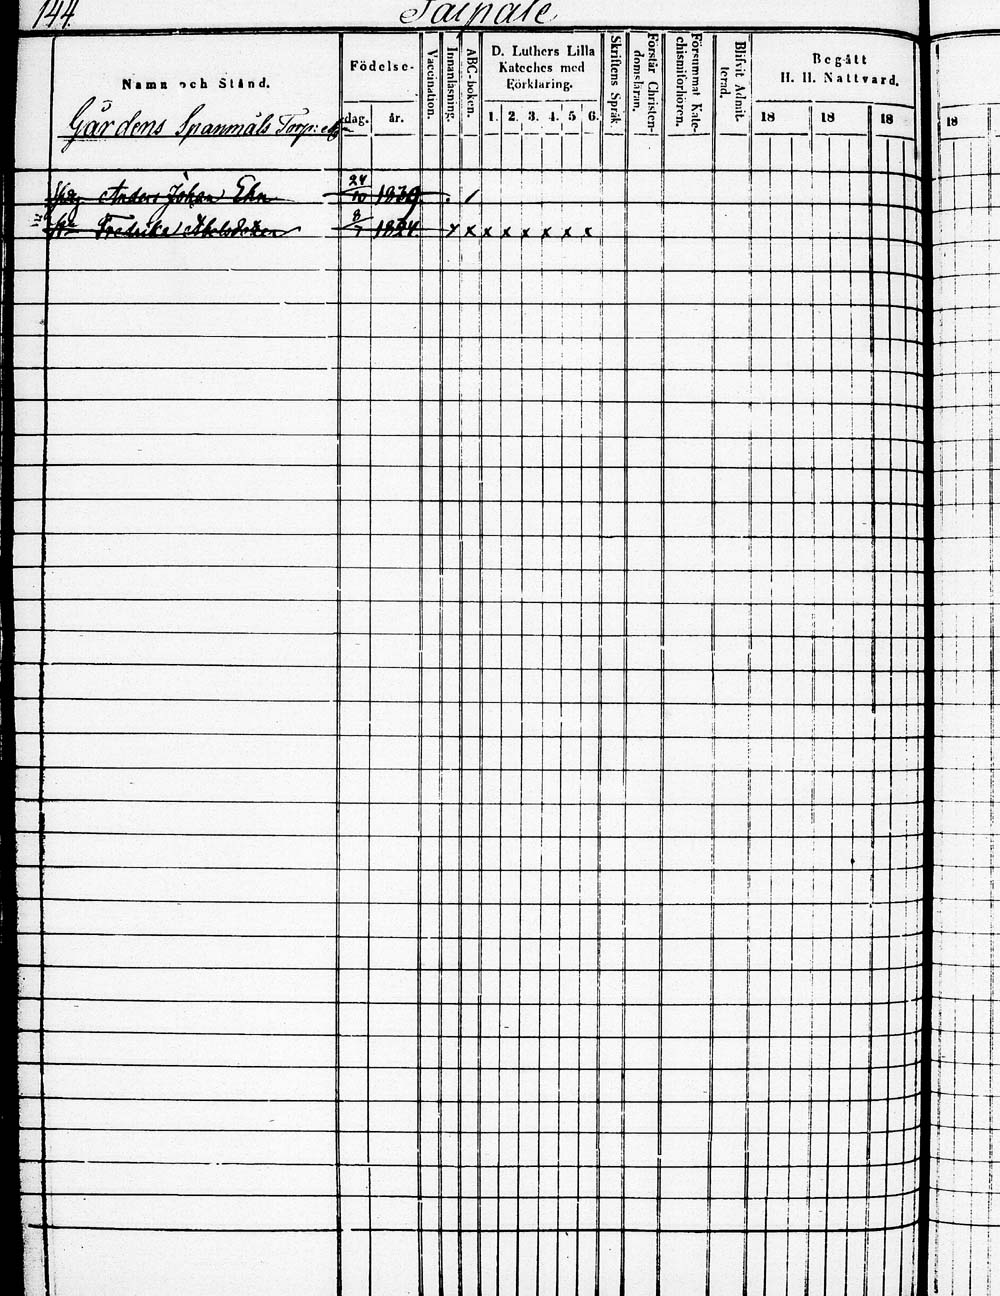 144.
Taipale
Namn och Stånd.
Födelse-
dag. år.
Vaccination.
Innanläsning.
ABC-boken.
D. Luthers Lilla
Kateches med
Förklaring.
1. 2. 3. 4. 5 6.
Skriftens Språk.
Förstår Christen-
domsläran.
Försummat Kate-
chismiförhören.
Blifvit Admit-
terad.
Begått
H. H. Nattvard.
18 18 18 18
Gårdens Spanmåls Torp:
Anders Johan Ehn 24/10 1839 /
Fredrika 8/7 1824. x x x x x x x x